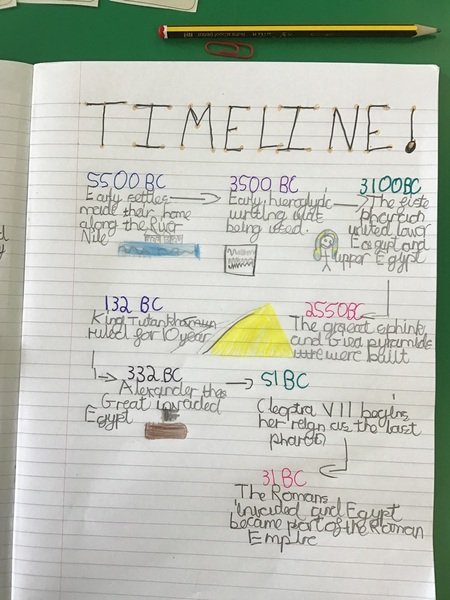 TIMELINE!
5500 BC
Early settles
made their home
along the River
Nile
3500 BC
Early hieroglyic
writing was
being used.
3100BC
The firste
pharaoh
united lower
Egypt and
upper Egypt
2550BC
The great sphinx
and Giza pyramids
were built
132 BC
King Tutankhamun
ruled for 10 year
332 BC
Alexander the
Great invaded
Egypt
51 BC
Cleoptra VII begins
her reign as the last
pharoh
31 BC
The Romans
invaded and Egypt
became part of the Roman
Empire